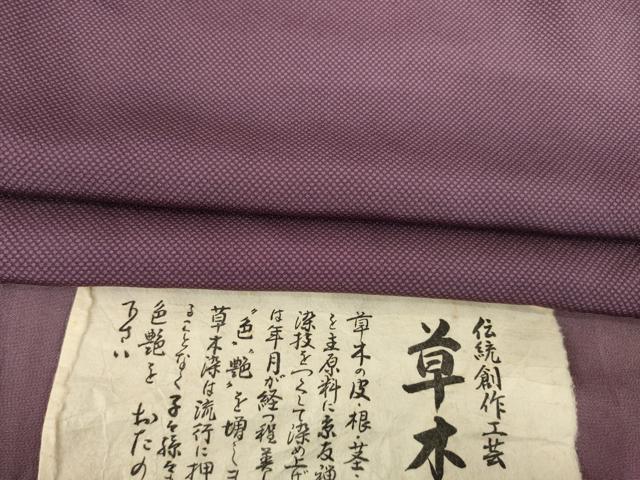 伝統創作工芸
草木
草木の皮・根・茎・
を主原料に京友禅
染技をつくして染め上げ
は年月が経つ程美し
〝色〟〝艶〟を増しま
草木染は流行に押
ることなく子々孫々
色艶を おたの
下さい